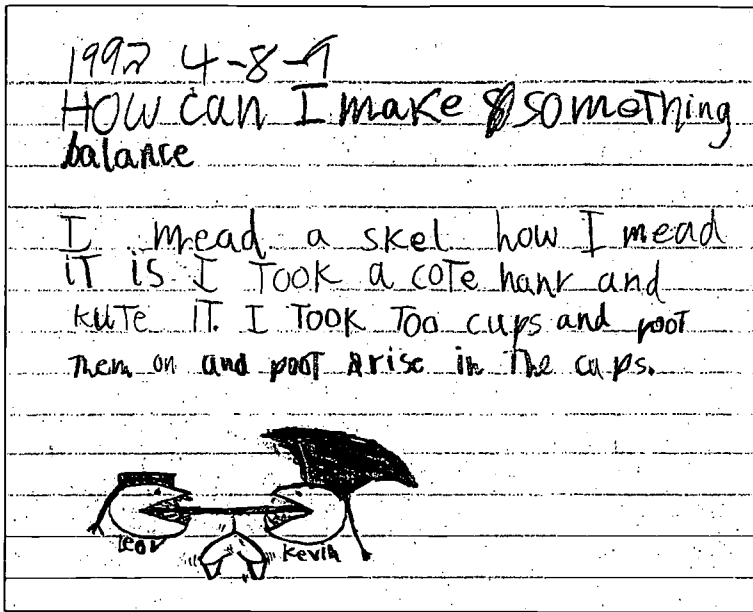 1992 4-8-9
How can I make something
balance
I mead a skel how I mead
iT is I Took a coTe hanr and
kuTe iT. I Took Too cups and pooT
Them on and pooT rise in The cups.
Kevin